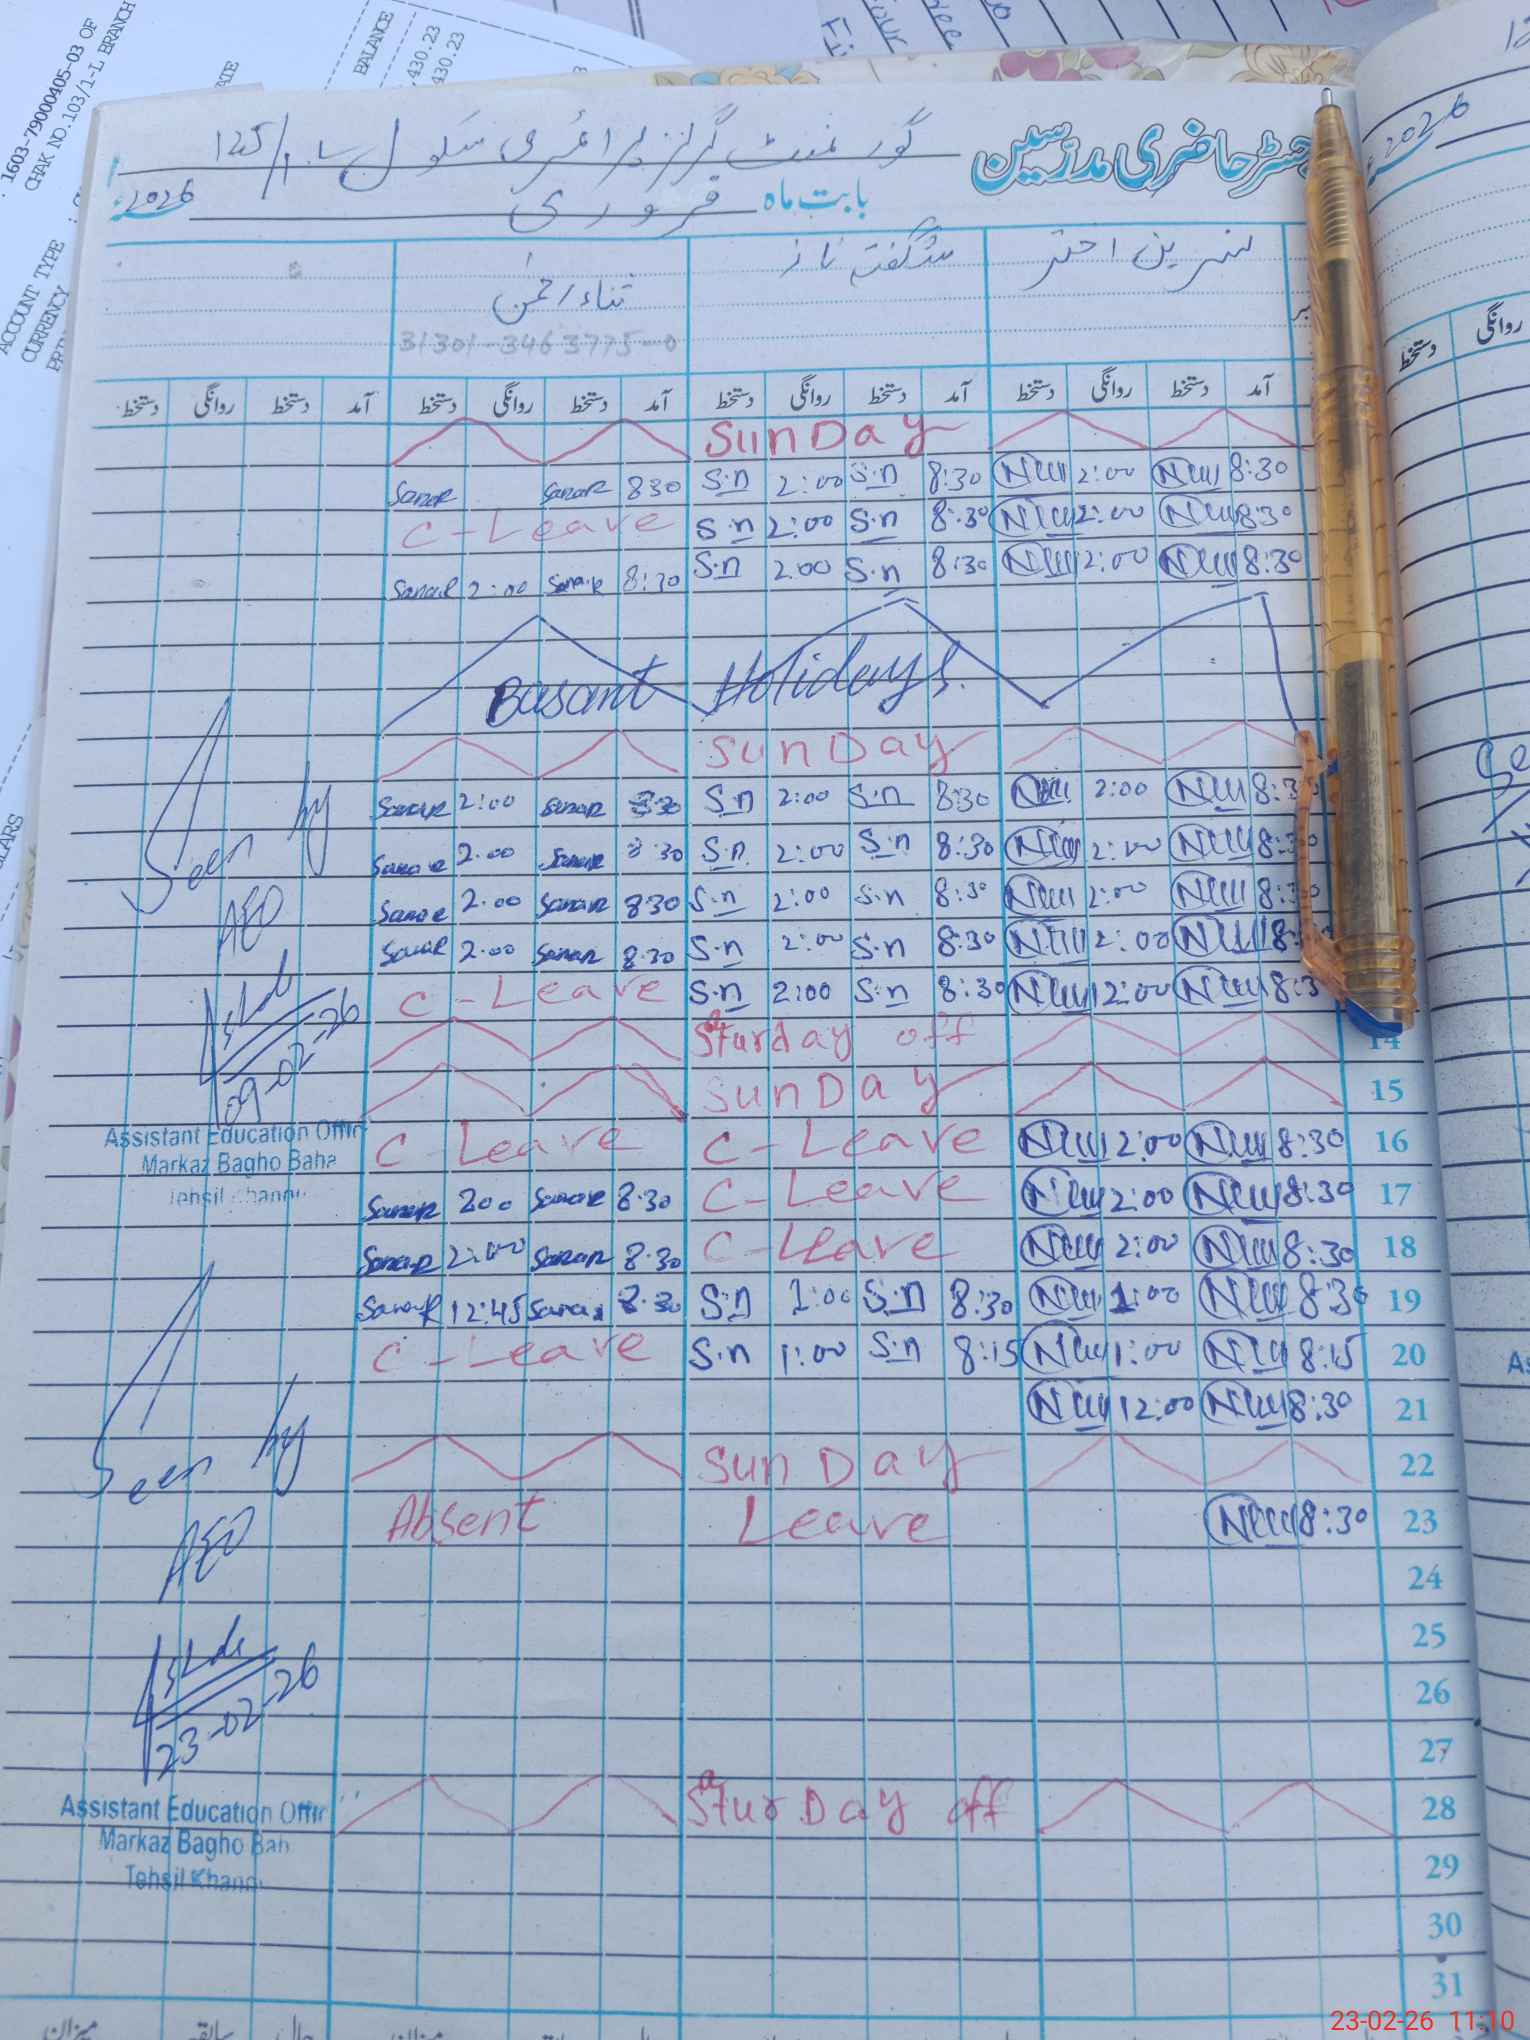 1603-79000405-03 OF
CHAK NO.103/1-L BRANCH
BALANCE
,430.23
430.23
ACCOUNT TYPE
CURRENCY
رجسٹر حاضری مدرسین گورنمنٹ گرلز پرائمری سکول
بابت ماہ فروری 2026ء
نسرین اختر شگفتہ ناز ثناء رحمن
31301-3463775-0
آمد دستخط روانگی دستخط آمد دستخط روانگی دستخط آمد دستخط روانگی دستخط آمد دستخط روانگی دستخط
SunDay
SanaR SanaR 830 S.n 2:00 S.n 8:30 2:00 8:30
C-Leave S.n 2:00 S.n 8:30 2:00 8:30
SanaR 2:00 SanaR 8:30 S.n 2.00 S.n 8:30 2:00 8:30
Basant Holidays.
SunDay
SanaR 2:00 SanaR 8:30 S.n 2:00 S.n 8:30 2:00 8:30
SanaR 2.00 SanaR 8:30 S.n 2:00 S.n 8:30 2:00 8:30
SanaR 2.00 SanaR 8:30 S.n 2:00 S.n 8:30 2:00 8:30
SanaR 2.00 SanaR 8.30 S.n 2:00 S.n 8:30 2:00
C-Leave S.n 2:00 S.n 8:30 2:00 8:3
Saturday off 14
SunDay 15
C-Leave C-Leave 2:00 8:30 16
SanaR 200 SanaR 8.30 C-Leave 2:00 8:30 17
SanaR 2:00 SanaR 8.30 C-Leave 2:00 8:30 18
SanaR 12:45 SanaR 8.30 S.n 1:00 S.n 8:30 1:00 8:30 19
C-Leave S.n 1:00 S.n 8:15 1:00 8:15 20
12:00 8:30 21
SunDay 22
Absent Leave 8:30 23
24
25
26
27
SaturDay off 28
29
30
31
Seen by
AEO
09-02-26
Assistant Education Offir
Markaz Bagho Baha
Tehsil Khan
Seen by
AEO
23-02-26
Assistant Education Offir
Markaz Bagho Bah
Tehsil Khan
2026
روانگی دستخط
23-02-26 11:10